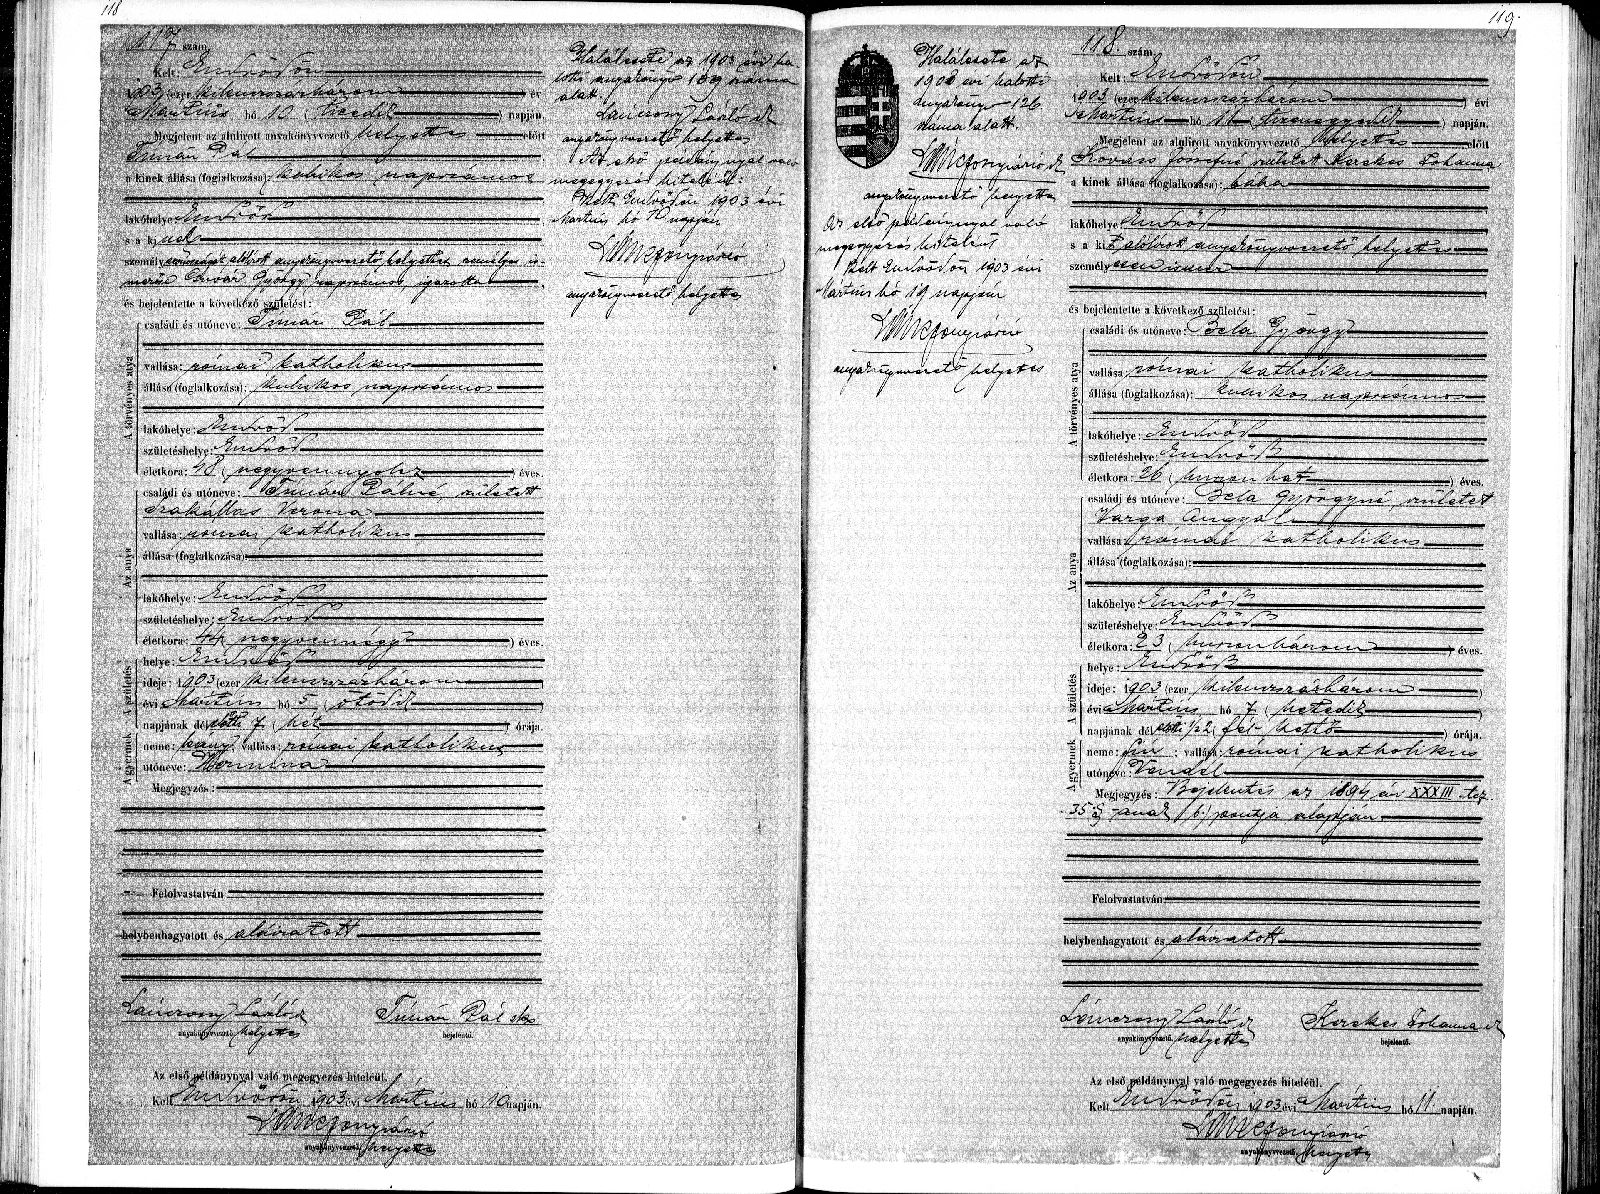 118
117 szám.
Kelt: Endrődön
1903 (ezer kilencszázhárom) év
Martius hó 10. (tizedik) napján.
Megjelent az alulirott anyakönyvvezető helyettes előtt
Timár Pál
a kinek állása (foglalkozása): kubikos napszámos
lakóhelye: Endrőd
s a ki
alólirt anyakönyvvezető helyettes
György napszámos igazolta
és bejelentette a következő születést:
A törvényes atya
családi és utóneve: Timár Pál
vallása: római katholikus
állása (foglalkozása): kubikos napszámos
lakóhelye: Endrőd
születéshelye: Endrőd
életkora: 48 (negyvennyolcz) éves.
Az anya
családi és utóneve: Timár Pálné, született
Szakállas Verona
vallása: római katholikus
állása (foglalkozása):
lakóhelye: Endrőd
születéshelye: Endrőd
életkora: 44 negyvennégy) éves.
A gyermek A születés
helye: Endrőd
ideje: 1903 (ezer kilenczszázhárom
évi Martius hó 5 (ötödik)
napjának délelőtti 7 (hét) órája.
neme: leány, vallása: római katholikus
utóneve:
Megjegyzés:
Felolvastatván
helybenhagyatott és aláiratott
Lánczony László
anyakönyvvezető helyettes
Timár Pál sk
bejelentő.
Az első példánynyal való megegyezés hiteléül.
Kelt Endrődön 1903 évi Martius hó 10 napján.
anyakönyvvezető helyettes
Halálesete az 1903 évi ha
lotti anyakönyv 139 száma
alatt.
Lánczony László
anyakönyvvezető helyettes
Az első példánynyal való
megegyezés hiteléül:
Kelt Endrődön 1903 évi
Martius hó 10 napján
anyakönyvvezető helyettes
119.
Halálesete az
1903 évi halotti
anyakönyv 126
száma alatt.
anyakönyvvezető helyettes
Az első példánynyal való
megegyezés hiteléül
Kelt Endrődön 1903 évi
Martius hó 19 napján
anyakönyvvezető helyettes
118. szám.
Kelt: Endrődön
1903 (ezer kilenczszázhárom) évi
Martius hó 11 (tizenegyedik) napján.
Megjelent az alulirott anyakönyvvezető helyettes előtt
Kovács Józsefné született Kerekes Johanna
a kinek állása (foglalkozása): bába
lakóhelye Endrőd
s a kit alólirott anyakönyvvezető helyettes
személyesen ismer
és bejelentette a következő születést:
A törvényes atya
családi és utóneve: Bela György
vallása római katholikus
állása (foglalkozása): kubikos napszámos
lakóhelye: Endrőd
születéshelye: Endrőd
életkora: 26 (huszonhat) éves.
Az anya
családi és utóneve: Bela Györgyné, született
Varga Angyal
vallása: római katholikus
állása (foglalkozása):
lakóhelye: Endrőd
születéshelye: Endrőd
életkora: 23 (huszonhárom) éves.
A gyermek A születés
helye: Endrőd
ideje: 1903 (ezer kilenczszázhárom)
évi Martius hó 7 (hetedik)
napjának 1/2 2 (fél kettő) órája.
neme: fiu; vallása: római katholikus
utóneve: Vendel
Megjegyzés: Bejelentés az 1894 évi XXXIII tcz.
35 §-ának (b) pontja alapján
Felolvastatván
helybenhagyatott és aláiratott
Lánczony László
anyakönyvvezető helyettes
Kerekes Johanna
bejelentő.
Az első példánynyal való megegyezés hiteléül.
Kelt Endrődön 1903 évi Martius hó 11 napján.
anyakönyvvezető helyettes